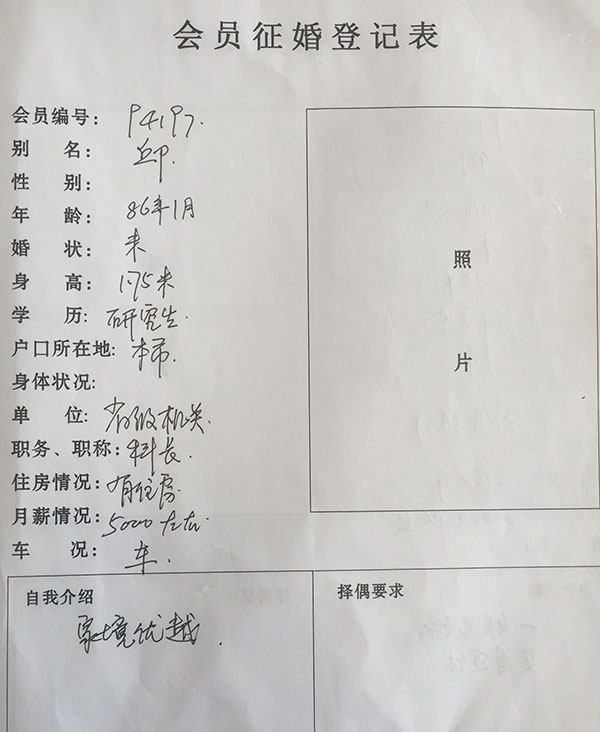 会员征婚登记表
会员编号： P4197.
别 名： 邱.
性 别：
年 龄： 86年1月
婚 状： 未
身 高： 1.75米
学 历： 研究生
户口所在地： 本市.
身体状况：
单 位： 省级机关.
职务、职称： 科长.
住房情况： 有住房
月薪情况： 5000左右.
车 况： 车.
照
片
自我介绍
家境优越.
择偶要求